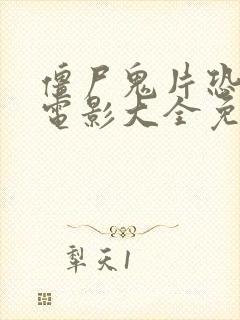 僵尸鬼片恐
电影大全免
犁天1